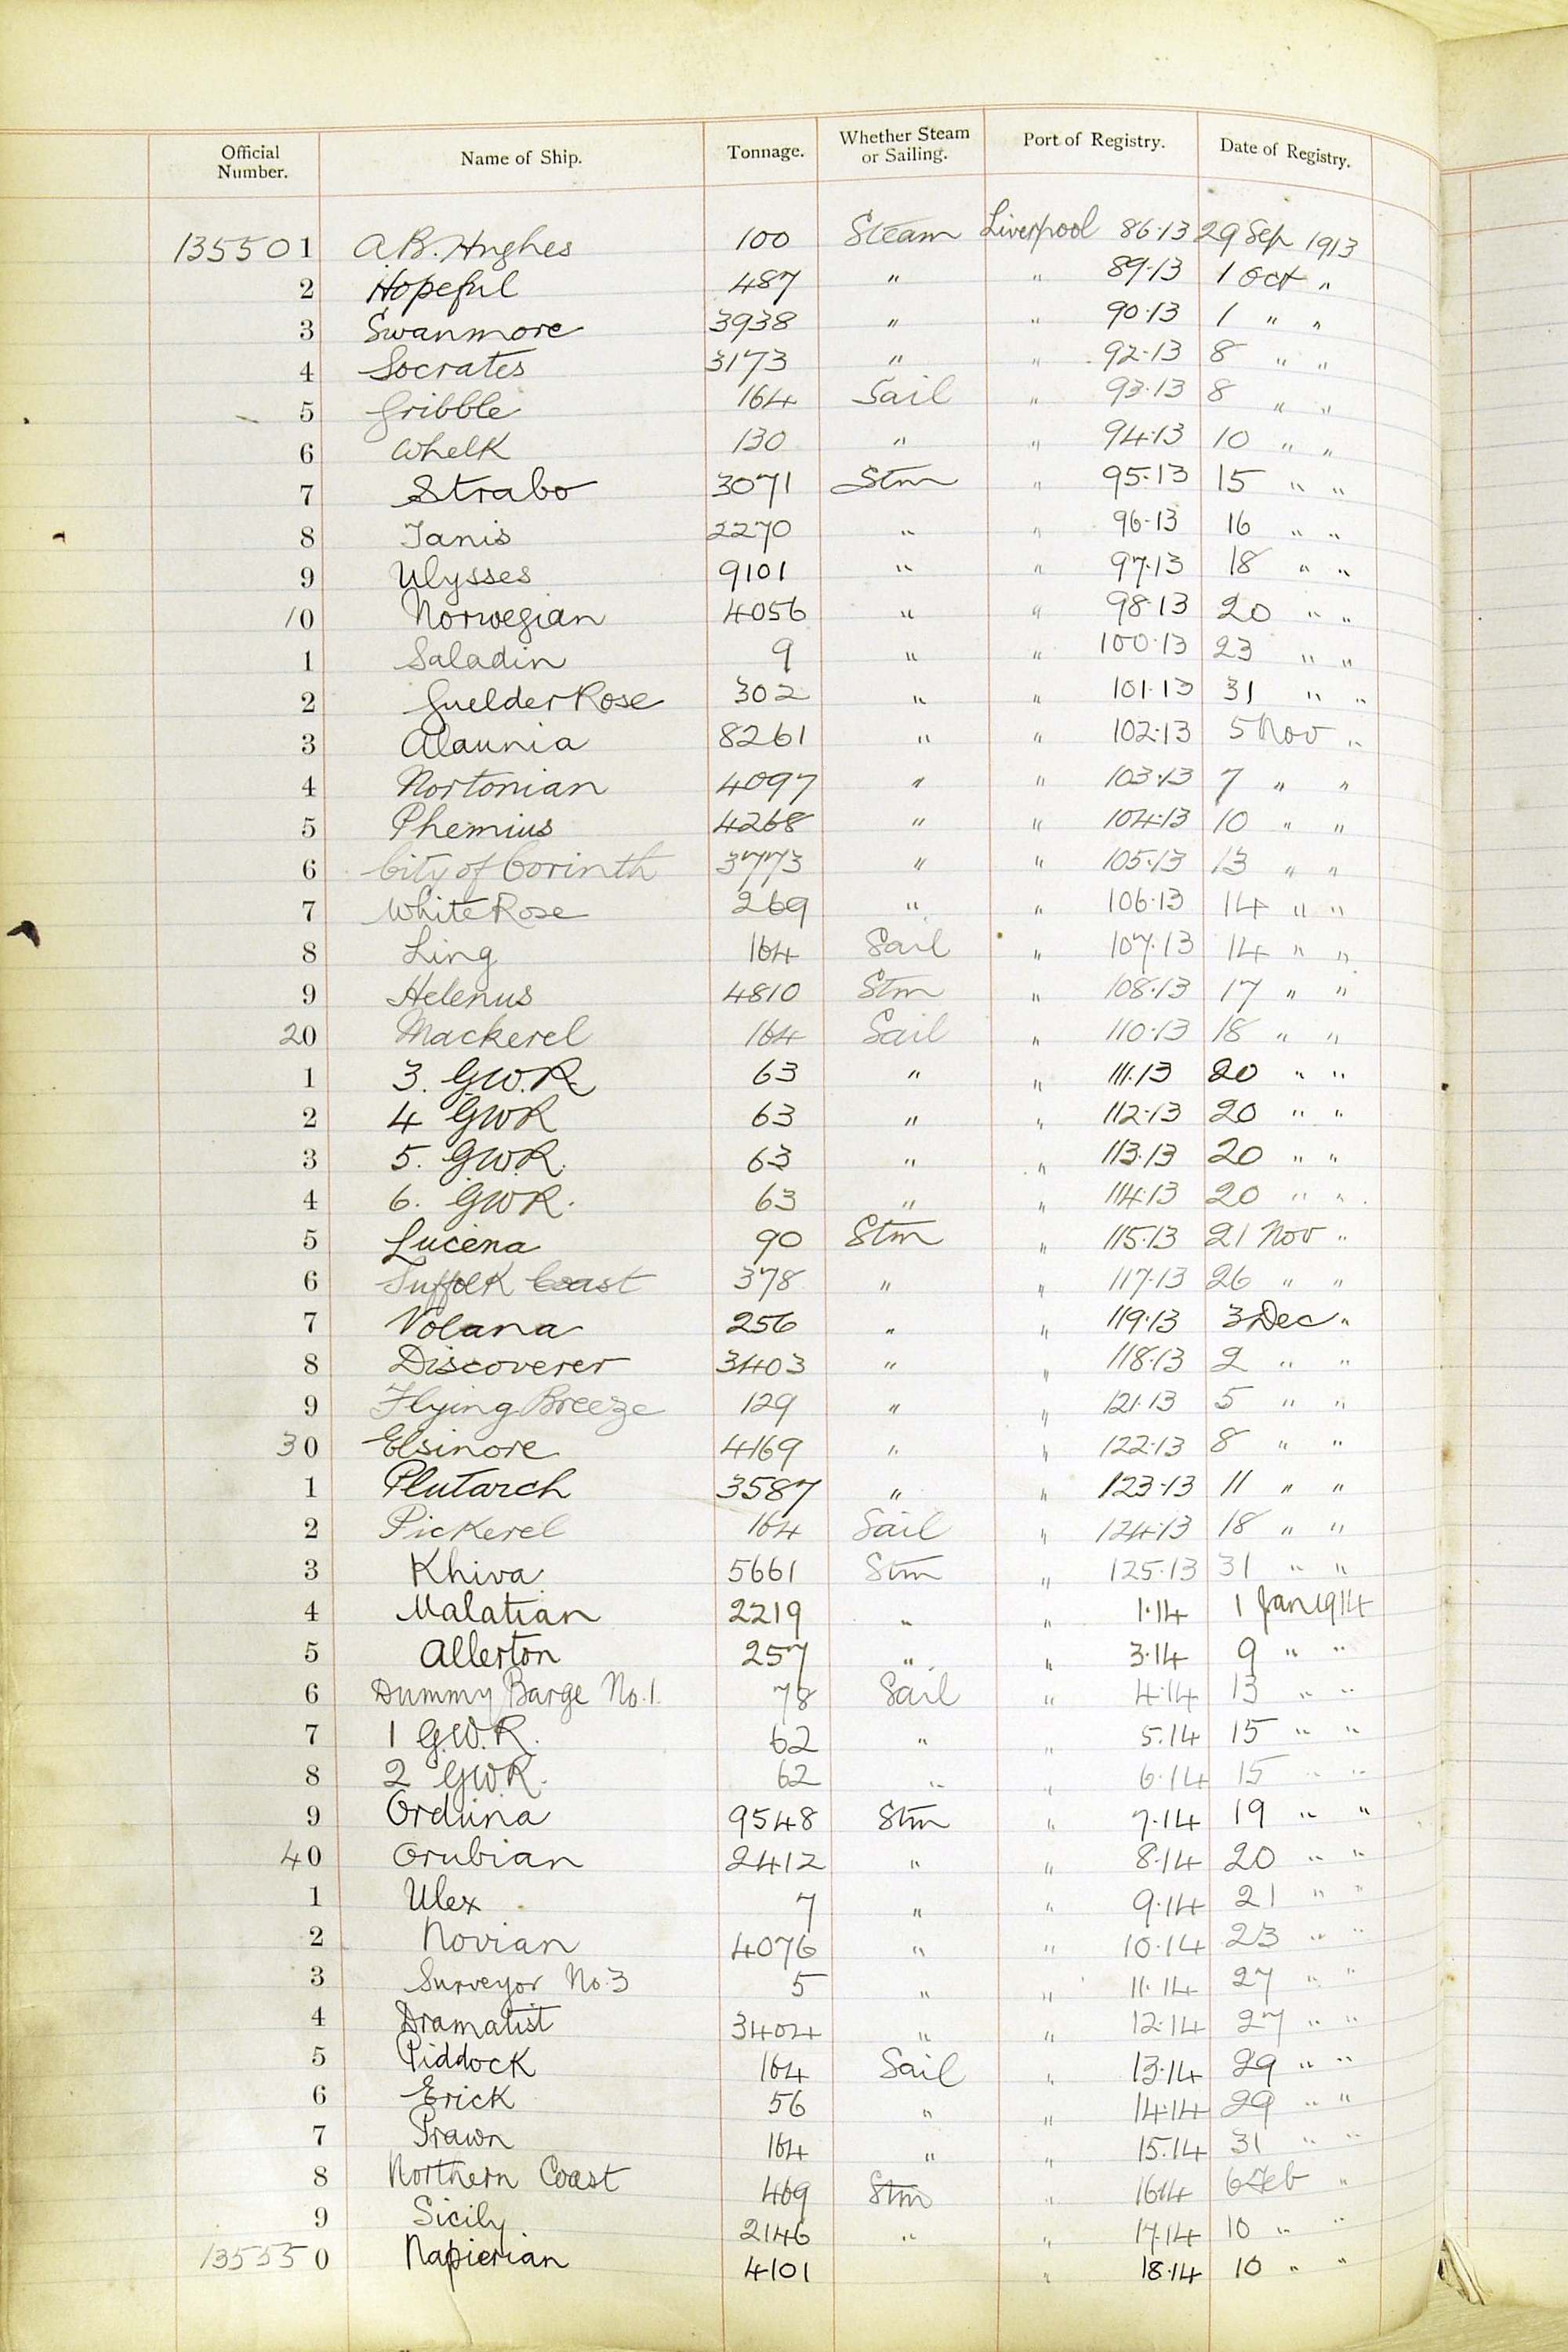 Official Number. Name of Ship. Tonnage. Whether Steam or Sailing. Port of Registry. Date of Registry.
135501 A B. Hughes 100 Steam Liverpool 86.13 29 Sep 1913
2 Hopeful 487 " " 89.13 1 Oct "
3 Swanmore 3938 " " 90.13 1 " "
4 Socrates 3173 " " 92.13 8 " "
5 Gribble 164 Sail " 93.13 8 " "
6 Whelk 130 " " 94.13 10 " "
7 Strabo 3071 Stm " 95.13 15 " "
8 Tanis 2270 " " 96.13 16 " "
9 Ulysses 9101 " " 97.13 18 " "
10 Norwegian 4056 " " 98.13 20 " "
1 Saladin 9 " " 100.13 23 " "
2 Guelder Rose 302 " " 101.13 31 " "
3 Alaunia 8261 " " 102.13 5 Nov "
4 Nortonian 4097 " " 103.13 7 " "
5 Phemius 4268 " " 104.13 10 " "
6 City of Corinth 3773 " " 105.13 13 " "
7 White Rose 269 " " 106.13 14 " "
8 Ling 164 Sail " 107.13 14 " "
9 Helenus 4810 Stm " 108.13 17 " "
20 Mackerel 164 Sail " 110.13 18 " "
1 3. G.W.R. 63 " " 111.13 20 " "
2 4 GWR 63 " " 112.13 20 " "
3 5. G.W.R. 63 " " 113.13 20 " "
4 6. GWR. 63 " " 114.13 20 " "
5 Lucena 90 Stm " 115.13 21 Nov "
6 Suffolk Coast 378 " " 117.13 26 " "
7 Volana 256 " " 119.13 3 Dec "
8 Discoverer 3403 " " 118.13 2 " "
9 Flying Breeze 129 " " 121.13 5 " "
30 Elsinore 4169 " " 122.13 8 " "
1 Plutarch 3587 " " 123.13 11 " "
2 Pickerel 164 Sail " 124.13 18 " "
3 Khiva 5661 Stm " 125.13 31 " "
4 Malatian 2219 " " 1.14 1 Jan 1914
5 Allerton 257 " " 3.14 9 " "
6 Dummy Barge No. 1. 78 Sail " 4.14 13 " "
7 1 G.W.R. 62 " " 5.14 15 " "
8 2 GWR. 62 " " 6.14 15 " "
9 Orduna 9548 Stm " 7.14 19 " "
40 Orubian 2412 " " 8.14 20 " "
1 Ulex 7 " " 9.14 21 " "
2 Novian 4076 " " 10.14 23 " "
3 Surveyor No. 3 5 " " 11.14 27 " "
4 Dramatist 3404 " " 12.14 27 " "
5 Piddock 164 Sail " 13.14 29 " "
6 Erick 56 " " 14.14 29 " "
7 Prawn 164 " " 15.14 31 " "
8 Northern Coast 469 Stm " 16.14 6 Feb "
9 Sicily 2146 " " 17.14 10 " "
135550 Napierian 4101 " 18.14 10 " "